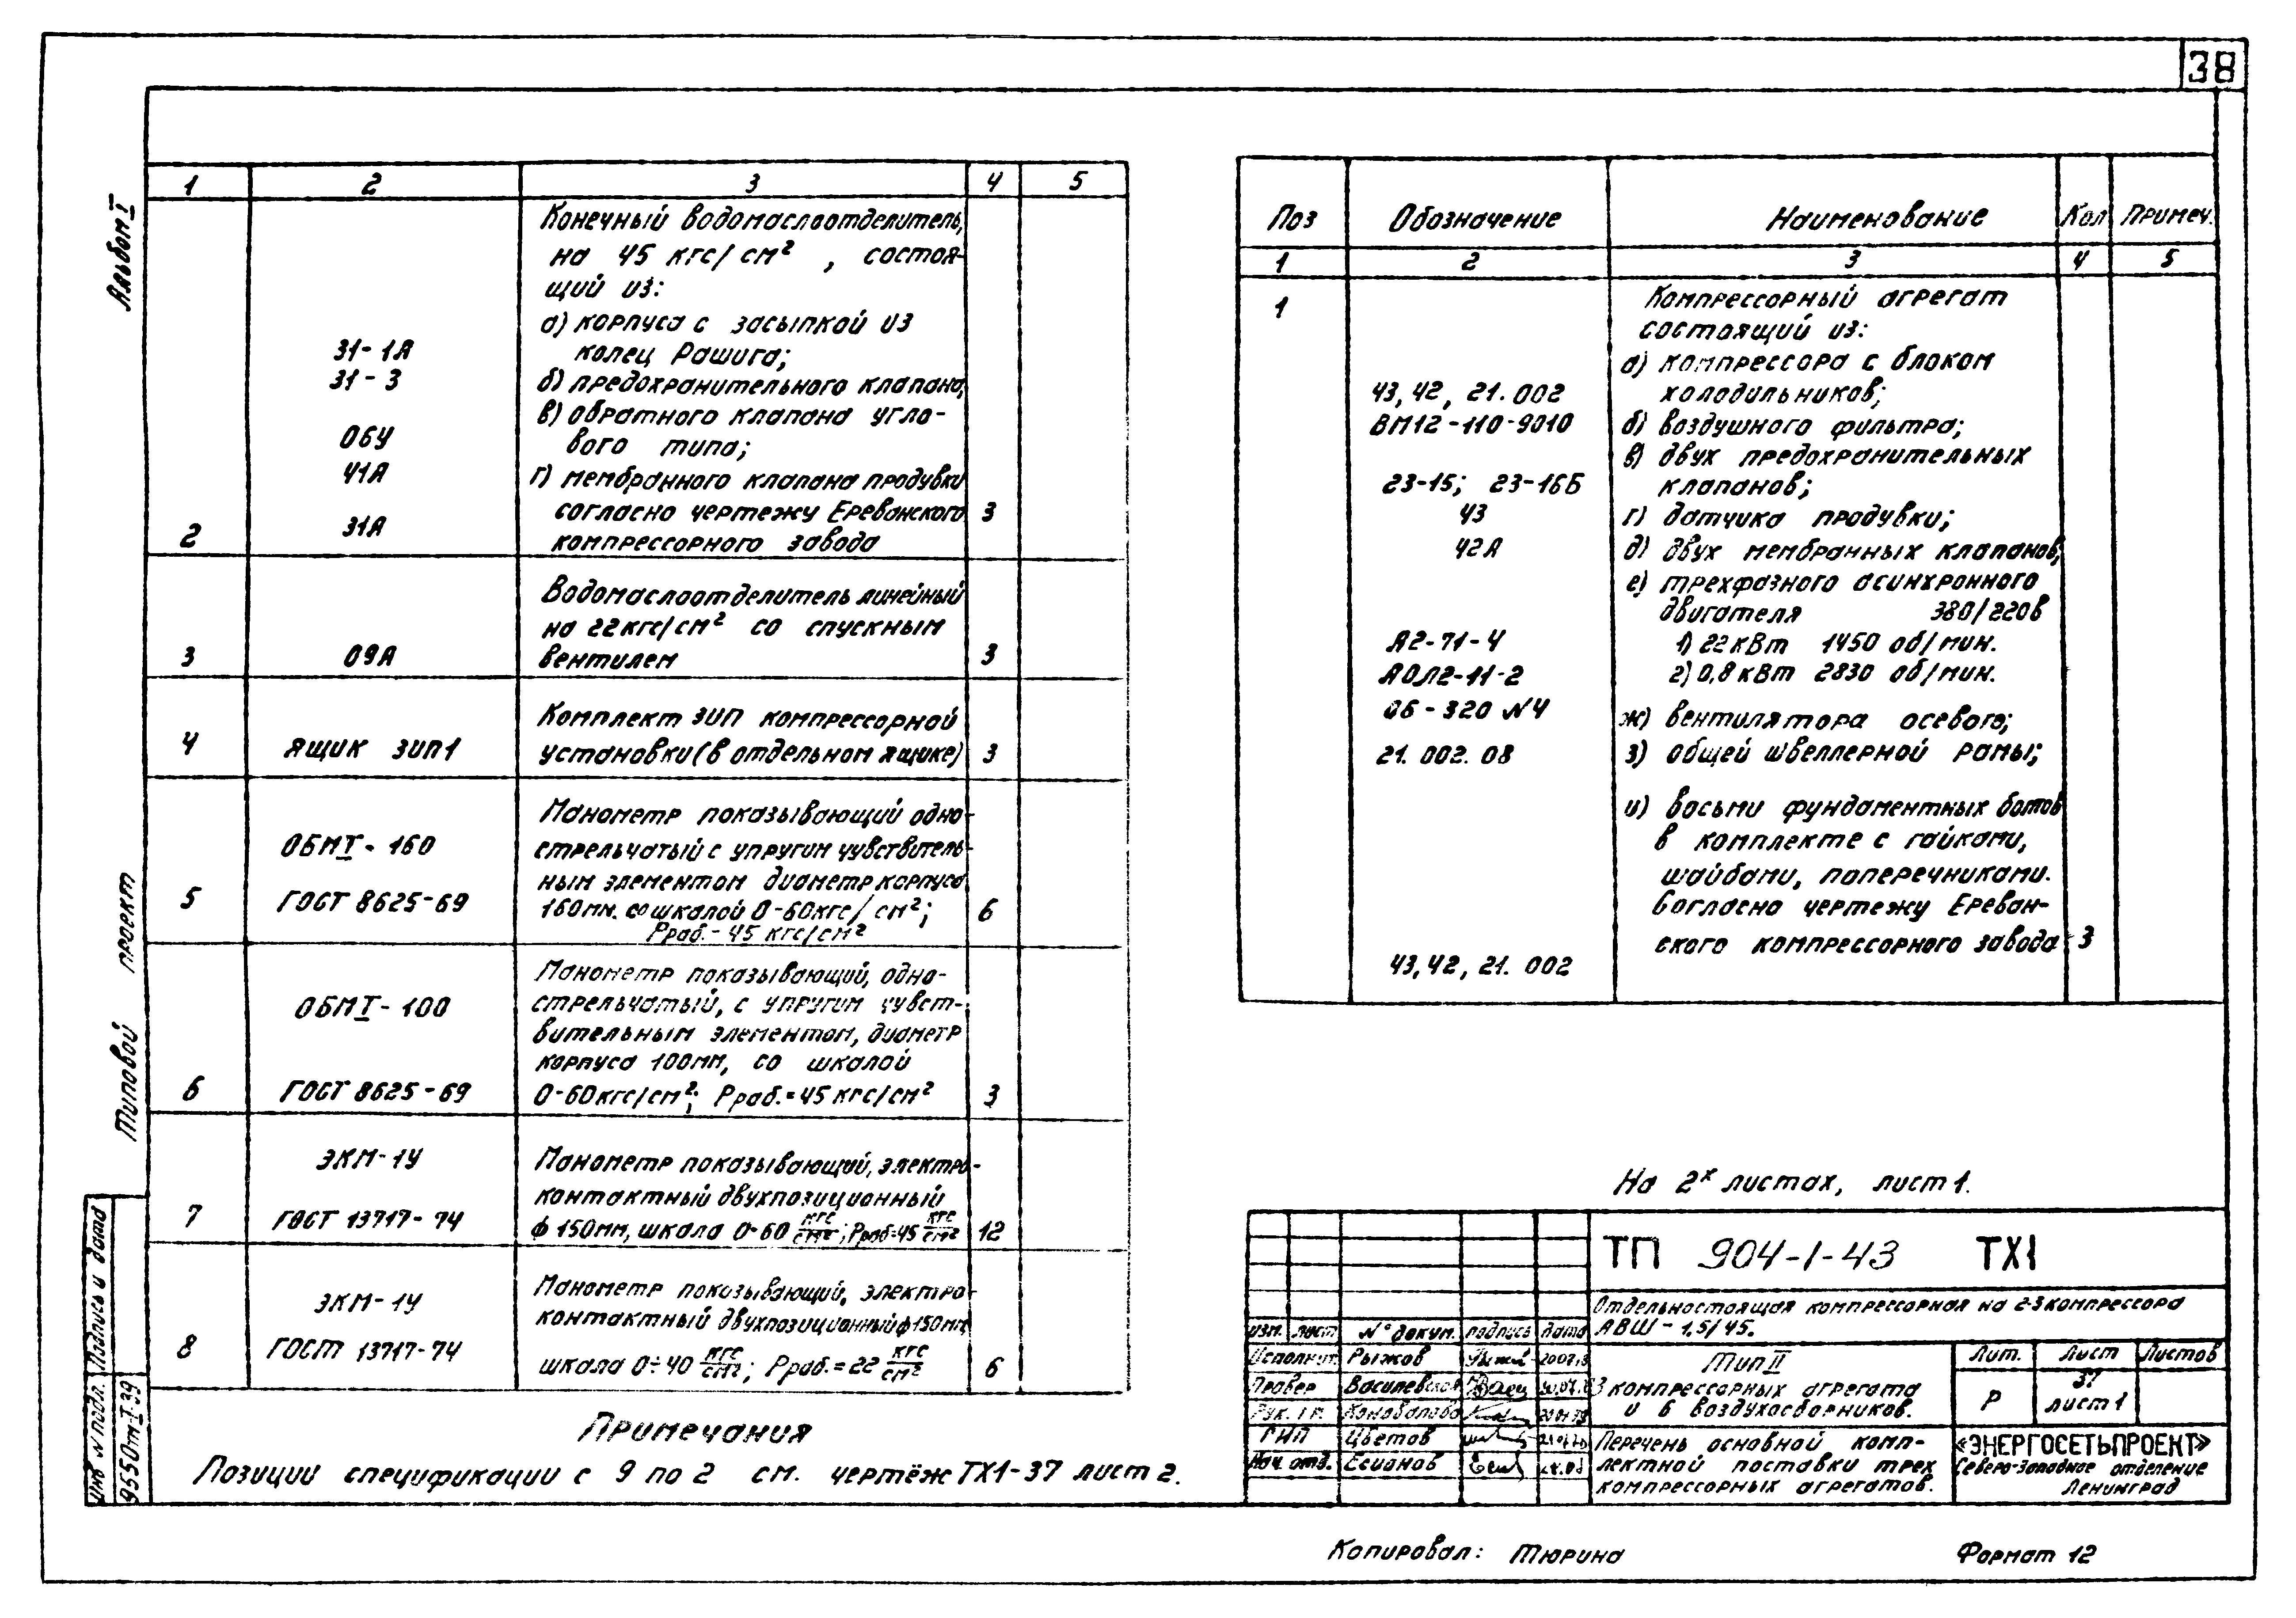 38
Альбом I
Типовой проект
Инв N подл. Подпись и дата
9550тм-I-39
1 2 3 4 5
Конечный водомаслоотделитель,
на 45 кгс/см² , состоя-
щий из:
а) корпуса с засыпкой из
31-1А колец Рашига;
31-3 б) предохранительного клапана;
в) обратного клапана угло-
06У вого типа;
41А г) мембранного клапана продувки
согласно чертежу Ереванского 3
2 31А компрессорного завода
Водомаслоотделитель линейный
на 22кгс/см² со спускным
3 09А вентилем 3
Комплект ЗИП компрессорной
4 Ящик ЗИП1 установки (в отдельном ящике) 3
Манометр показывающий одно-
ОБМI-160 стрельчатый с упругим чувствитель-
ным элементом диаметр корпуса
5 ГОСТ 8625-69 160мм. со шкалой 0-60кгс/см²; 6
Рраб.- 45 кгс/см²
Манометр показывающий, одно-
ОБМI-100 стрельчатый, с упругим чувст-
вительным элементом, диаметр
корпуса 100мм, со шкалой
6 ГОСТ 8625-69 0-60кгс/см²; Рраб.=45 кгс/см² 3
ЭКМ-1У Манометр показывающий, электро-
контактный двухпозиционный
7 ГОСТ 13717-74 ф 150мм, шкала 0-60 кгс/см²; Рраб=45 кгс/см² 12
Манометр показывающий, электро-
ЭКМ-1У контактный двухпозиционный ф150мм,
8 ГОСТ 13717-74 шкала 0÷40 кгс/см²; Рраб.=22 кгс/см² 6
Примечания
Позиции спецификации с 9 по 2 см. чертёж ТХ1-37 лист 2.
Поз Обозначение Наименование Кол Примеч.
1 2 3 4 5
1 Компрессорный агрегат
состоящий из:
а) компрессора с блоком
43, 42, 21.002 холодильников;
ВМ12-110-9010 б) воздушного фильтра;
в) двух предохранительных
23-15; 23-16Б клапанов;
43 г) датчика продувки;
42А д) двух мембранных клапанов;
е) трехфазного асинхронного
двигателя 380/220в
А2-71-4 1) 22кВт 1450 об/мин.
АОЛ2-11-2 2) 0,8кВт 2830 об/мин.
06-320 N4 ж) вентилятора осевого;
21.002.08 з) общей швеллерной рамы;
и) восьми фундаментных болтов
в комплекте с гайками,
шайбами, поперечниками.
Согласно чертежу Ереван-
ского компрессорного завода 3
43, 42, 21.002
На 2х листах, лист 1.
ТП 904-1-43 ТХ1
Отдельностоящая компрессорная на 2-3 компрессора
АВШ-1,5/45.
изм. лист N° докум. подпись дата
Исполнит. Рыжов
Провер Василевская
Рук. гр. Коновалова
ГИП Цветов
Нач. отд. Есианов
Тип II
3 компрессорных агрегата
и 6 воздухосборников.
Лит. Лист Листов
Р 37 лист 1
Перечень основной комп-
лектной поставки трех
компрессорных агрегатов.
«ЭНЕРГОСЕТЬПРОЕКТ»
Северо-Западное отделение
Ленинград
Копировал: Тюрина Формат 12